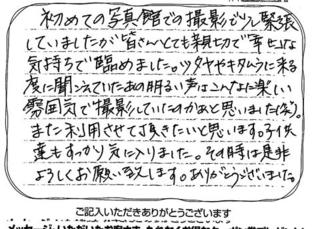 初めての写真館での撮影で少し緊張
していましたが皆さんとても親切で幸せな
気持ちで臨めました。ツタヤやキタムラに来る
度に聞こえていたあの明るい声はこんなに楽しい
雰囲気で撮影していたのかぁと思いました(笑)。
また利用させて頂きたいと思います。子供
達もすっかり気に入りました。その時は是非
よろしくお願い致します。ありがとうございました。
ご記入いただきありがとうございます